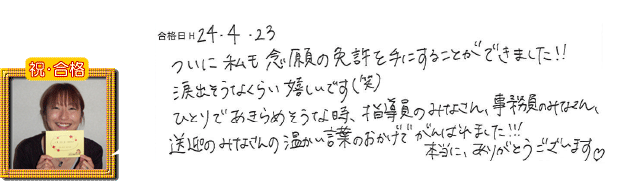 合格日H 24.4.23
祝・合格
ついに私も念願の免許を手にすることができました!!
涙出そうなくらい嬉しいです(笑)
ひとりであきらめそうな時、指導員のみなさん、事務員のみなさん、
送迎のみなさんの温かい言葉のおかげでがんばれました!!!
本当に、ありがとうございます♡